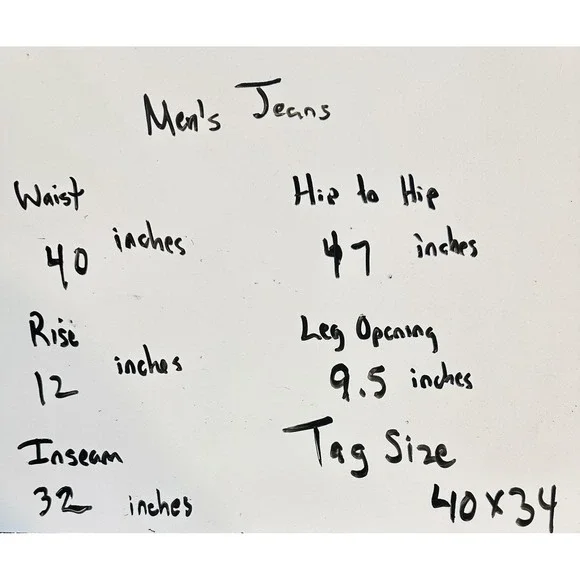 Men's Jeans
Waist
40 inches
Rise
12 inches
Inseam
32 inches
Hip to Hip
47 inches
Leg Opening
9.5 inches
Tag Size
40x34